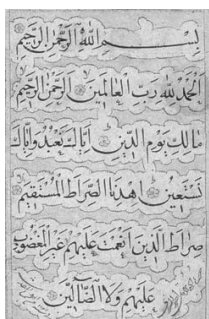 بِسْمِ اللهِ الرَّحْمٰنِ الرَّحِيْمِ
اَلْحَمْدُ لِلّٰهِ رَبِّ الْعَالَمِيْنَ الرَّحْمٰنِ الرَّحِيْمِ
مَالِكِ يَوْمِ الدِّيْنِ اِيَّاكَ نَعْبُدُ وَاِيَّاكَ
نَسْتَعِيْنُ اِهْدِنَا الصِّرَاطَ الْمُسْتَقِيْمَ
صِرَاطَ الَّذِيْنَ اَنْعَمْتَ عَلَيْهِمْ غَيْرِ الْمَغْضُوْبِ
عَلَيْهِمْ وَلَا الضَّآلِّيْنَ